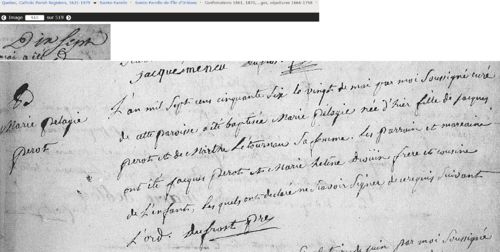 Quebec, Catholic Parish Registers, 1621-1979 Sainte-Famille Sainte-Famille-de-l'Île-d'Orléans Confirmations 1861, 1870, sépultures 1666-1758
Image 411 sur 519
Dix Sept
jacques meneu
B
Marie Pelagie
perot
L'an mil Sept cens cinquante Six le vingt de mai par moi Soussigné curé
de cette paroisse a été baptisée Marie pélagie née d'hier fille de jacques
perot et de Marthe Letourneau Sa femme. Les parrain et maraine
ont été jacques perot et Marie helene drouin frere et cousine
de L'enfant, lesquels ont declaré ne Savoir Signer de ce requis Suivant
L'ord. dufrost ptre
de juin par moi Soussigné